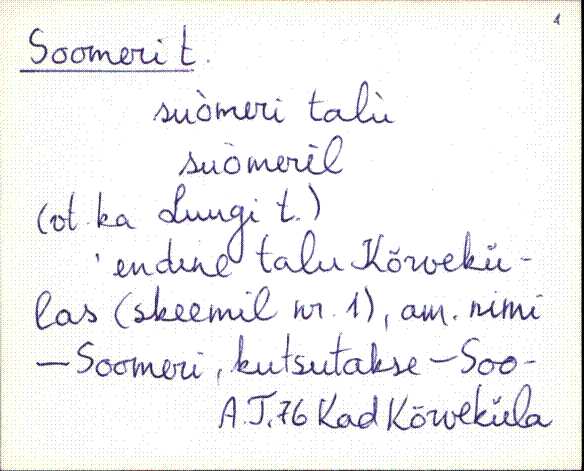 1
Soomeri t.
suòmeri talù
suòmerìl
(vt. ka Luugi t.)
'endine talu Kõrvekü-
las (skeemil nr. 1), am. nimi
— Soomeri, kutsutakse — Soo-
A.T.76 Kad Kõrveküla